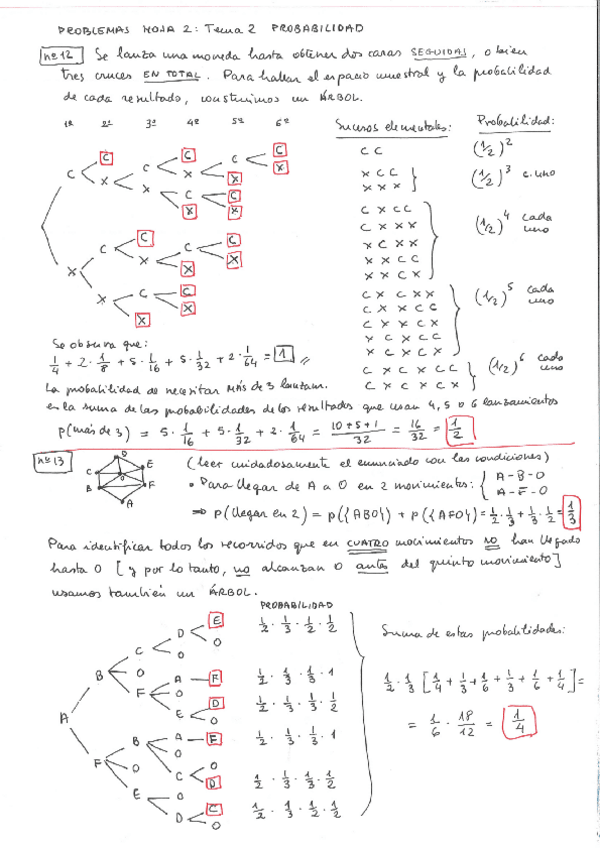 PROBLEMAS HOJA 2: Tema 2 PROBABILIDAD
nº 12 Se lanza una moneda hasta obtener dos caras SEGUIDAS, o bien
tres cruces EN TOTAL. Para hallar el espacio muestral y la probabilidad
de cada resultado, construimos un ÁRBOL.
1ª 2ª 3ª 4ª 5ª 6ª
Sucesos elementales: Probabilidad:
C C (1/2)^2
X C C
X X X (1/2)^3 c. uno
C X C C
C X X X
X C X X
X X C C
X X C X (1/2)^4 cada uno
C X C X X
C X X C C
C X X C X
X C X C C
X C X C X (1/2)^5 cada uno
C X C X C C
C X C X C X (1/2)^6 cada uno
Se observa que:
1/4 + 2·1/8 + 5·1/16 + 5·1/32 + 2·1/64 = 1
La probabilidad de necesitar MÁS de 3 lanzam.
es la suma de las probabilidades de los resultados que usan 4, 5 o 6 lanzamientos
P(más de 3) = 5·1/16 + 5·1/32 + 2·1/64 = 10+5+1/32 = 16/32 = 1/2
nº 13 (leer cuidadosamente el enunciado con las condiciones)
D
C E
O
B F
A
• Para llegar de A a O en 2 movimientos: { A-B-O
A-F-O
⇒ P(llegar en 2) = P({ABO}) + P({AFO}) = 1/2·1/3 + 1/3·1/2 = 1/3
Para identificar todos los recorridos que en CUATRO movimientos NO han llegado
hasta O [y por lo tanto, no alcanzan O antes del quinto movimiento]
usamos también un ÁRBOL.
PROBABILIDAD
A B C D E 1/2·1/3·1/2·1/2
O
O
O
F A F 1/2·1/3·1/3·1
O
E D 1/2·1/3·1/3·1/2
O
F B A F 1/2·1/3·1/3·1
O
O
C D 1/2·1/3·1/3·1/2
O
E O
D C 1/2·1/3·1/2·1/2
O
Suma de estas probabilidades:
1/2·1/3 [1/4 + 1/3 + 1/6 + 1/3 + 1/6 + 1/4] =
= 1/6 · 18/12 = 1/4